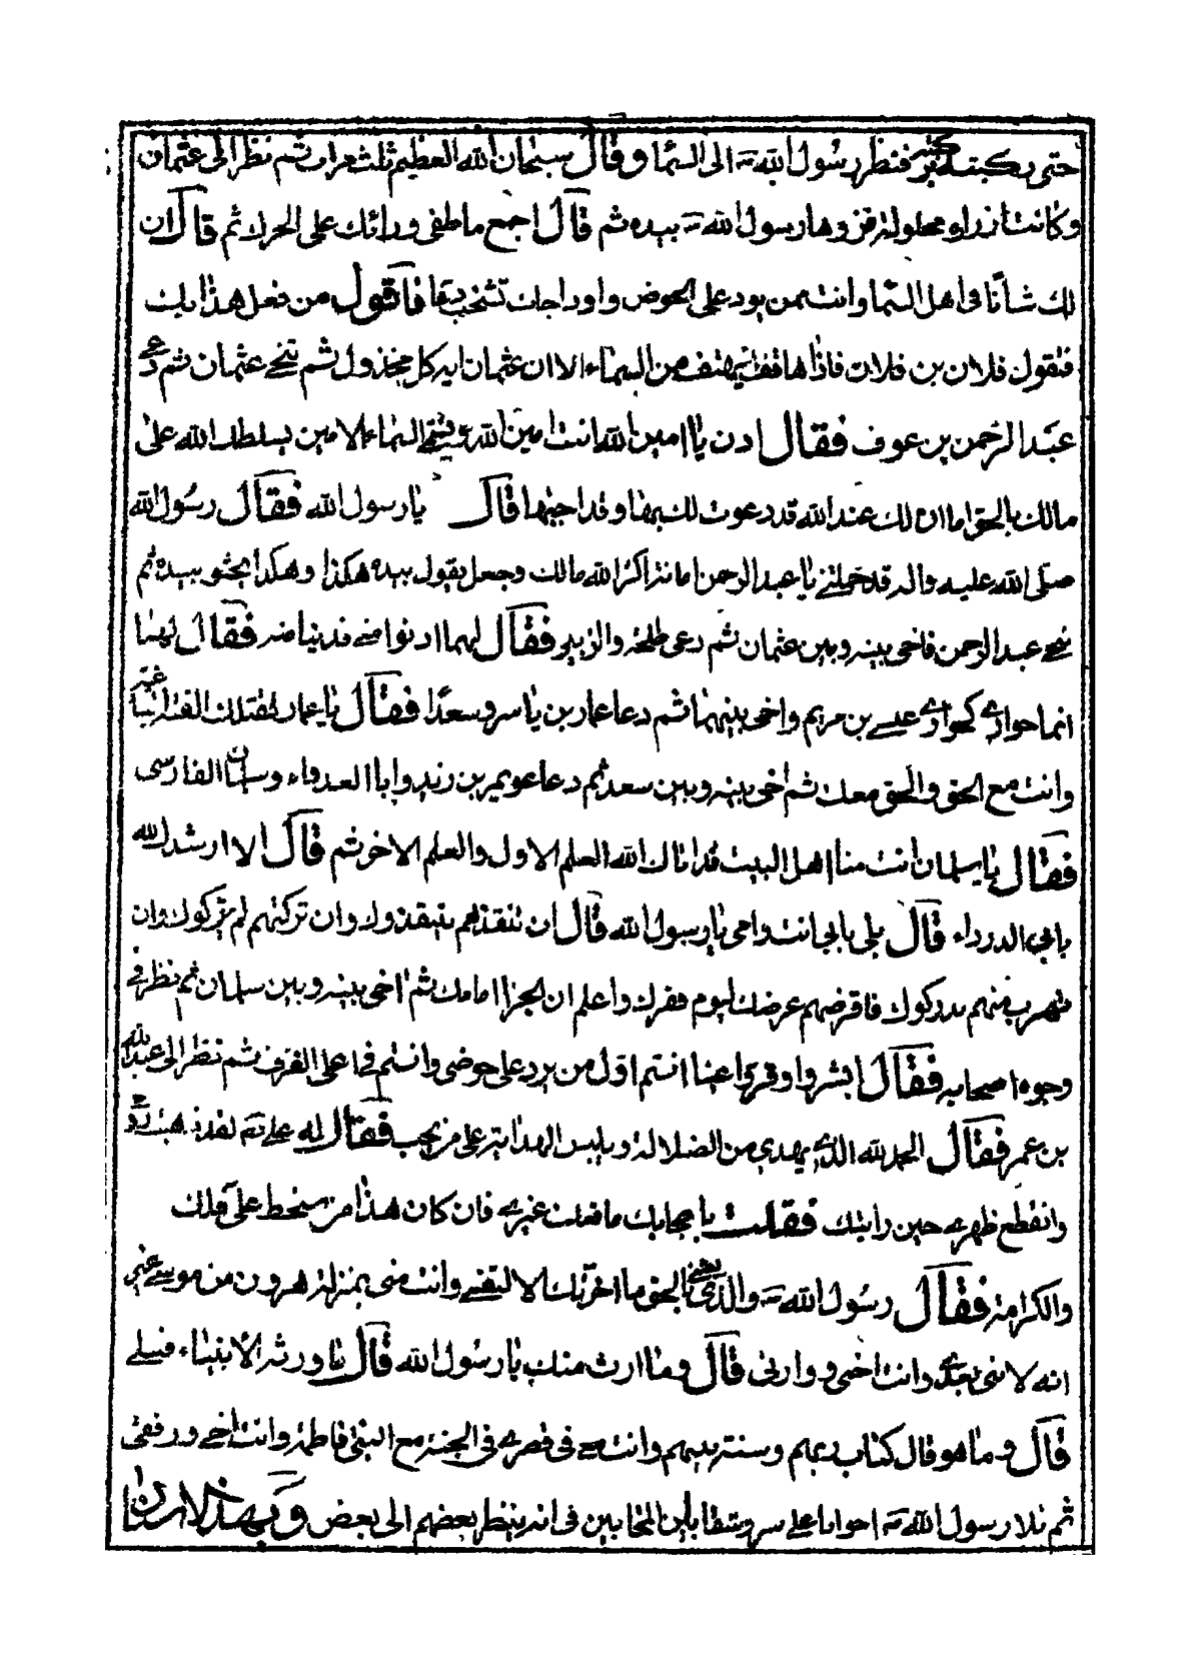 حتى ركبته ركبتيه فنظر رسول الله ص الى السما وقال سبحان الله العظيم ثلث مرات ثم نظر الى عثمان
وكانت ازراره محلولة فزرها رسول الله ص بيده ثم قال اجمع ما طفى ورائك على الحرك ثم قال ان
لك شانا فى اهل السما وانت ممن يرد على الحوض واوداجك تشخب دما فاقول من فعل هذا بك
فتقول فلان بن فلان فاذا هاتف يهتف من السماء الا ان عثمان امير كل مخذول ثم تنحى عثمان ثم دعى
عبد الرحمن بن عوف فقال ادن يا امين الله انت امين الله ويسمى فى السماء الامين يسلطك الله على
مالك بالحق اما ان لك عند الله قد دعوت لك بها وقد اجبتها قال يا رسول الله فقال رسول الله
صلى الله عليه واله قد حملتنى يا عبد الرحمن امانة اكثر الله مالك وجعل يقول بيده هكذا وهكذا يحثو بيده ثم
نحى عبد الرحمن فاخى بينه وبين عثمان ثم دعى طلحة والزبير فقال لهما ادنوا منى فدنيا منه فقال لهما
انتما حوارى كحوارى عيسى بن مريم واخى بينهما ثم دعا عمار بن ياسر وسعدا فقال يا عمار تقتلك الفئة الباغية
وانت مع الحق والحق معك ثم اخى بينه وبين سعد ثم دعا عويمر بن زيد وابا الدرداء وسلمان الفارسى
فقال يا سلمان انت منا اهل البيت قد اتاك الله العلم الاول والعلم الاخر ثم قال الا ارشدك الله
يا ابى الدرداء قال بلى بابى انت وامى يا رسول الله قال ان تنقذهم ينقذوك وان تركتهم لم يتركوك وان
تهرب منهم يدركوك فاقرضهم عرضك ليوم فقرك واعلم ان الجزا امامك ثم اخى بينه وبين سلمان ثم نظر فى
وجوه اصحابه فقال ابشروا وقروا عينا انتم اول من يرد على حوضى وانتم فى اعلى الغرف ثم نظر الى عبد الله
بن عمر فقال الحمد لله الذى يهدى من الضلالة ويلبس الهداية على من يحب فقال له على ع لقد ذهبت روحى
وانقطع ظهرى حين رايتك فعلت باصحابك ما فعلت غيرى فان كان هذا من سخط على فلك
والكرامة فقال رسول الله ص والذى بعثنى بالحق ما اخرتك الا لنفسى وانت منى بمنزلة هرون من موسى غير
انه لا نبى بعدى وانت اخى ووارثى قال وما ارث منك يا رسول الله قال ما ورثه الانبياء قبلى
قال وما هو قال كتاب ربهم وسنة نبيهم وانت معى فى قصرى فى الجنة مع ابنتى فاطمة وانت اخى ورفيقى
ثم تلا رسول الله ص اخوانا على سرر متقابلين المتحابين فى الله ينظر بعضهم الى بعض وبهذا الاسناد